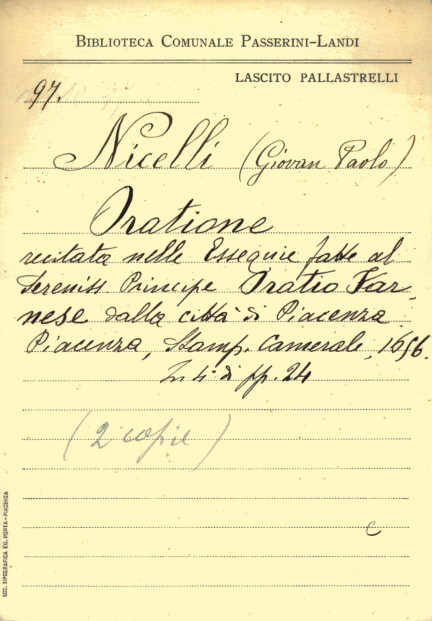 BIBLIOTECA COMUNALE PASSERINI-LANDI
LASCITO PALLASTRELLI
97.
Nicelli (Giovan Paolo)
Oratione
recitata nelle Essequie fatte al
Sereniss Principe Oratio Far-
nese dalla città di Piacenza
Piacenza, Stamp. Camerale, 1656.
In 4. di pp. 24
(2 copie)
C
SOC. TIPOGRAFICA ED. PORTA-PIACENZA